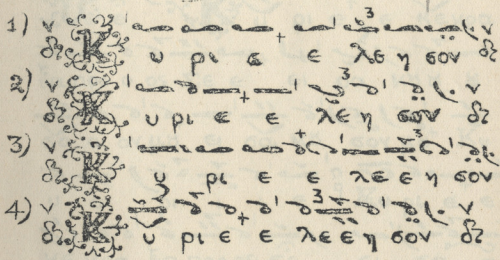 1) Κ υ ρι ε ε λε η σον
2) Κ υ ρι ε ε λε η σον
3) Κ υ ρι ε ε λε ε η σον
4) Κ υ ρι ε ε λε ε η σον